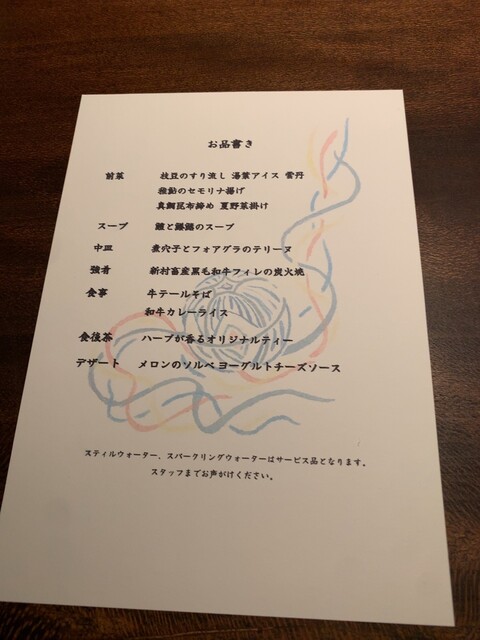 お品書き
前菜 枝豆のすり流し 湯葉アイス 雲丹
稚鮎のセモリナ揚げ
真鯛昆布締め 夏野菜掛け
スープ 鱧と のスープ
中皿 煮穴子とフォアグラのテリーヌ
強肴 新村畜産黒毛和牛フィレの炭火焼
食事 牛テールそば
和牛カレーライス
食後茶 ハーブが香るオリジナルティー
デザート メロンのソルベ ヨーグルトチーズソース
スティルウォーター、スパークリングウォーターはサービス品となります。
スタッフまでお声がけください。